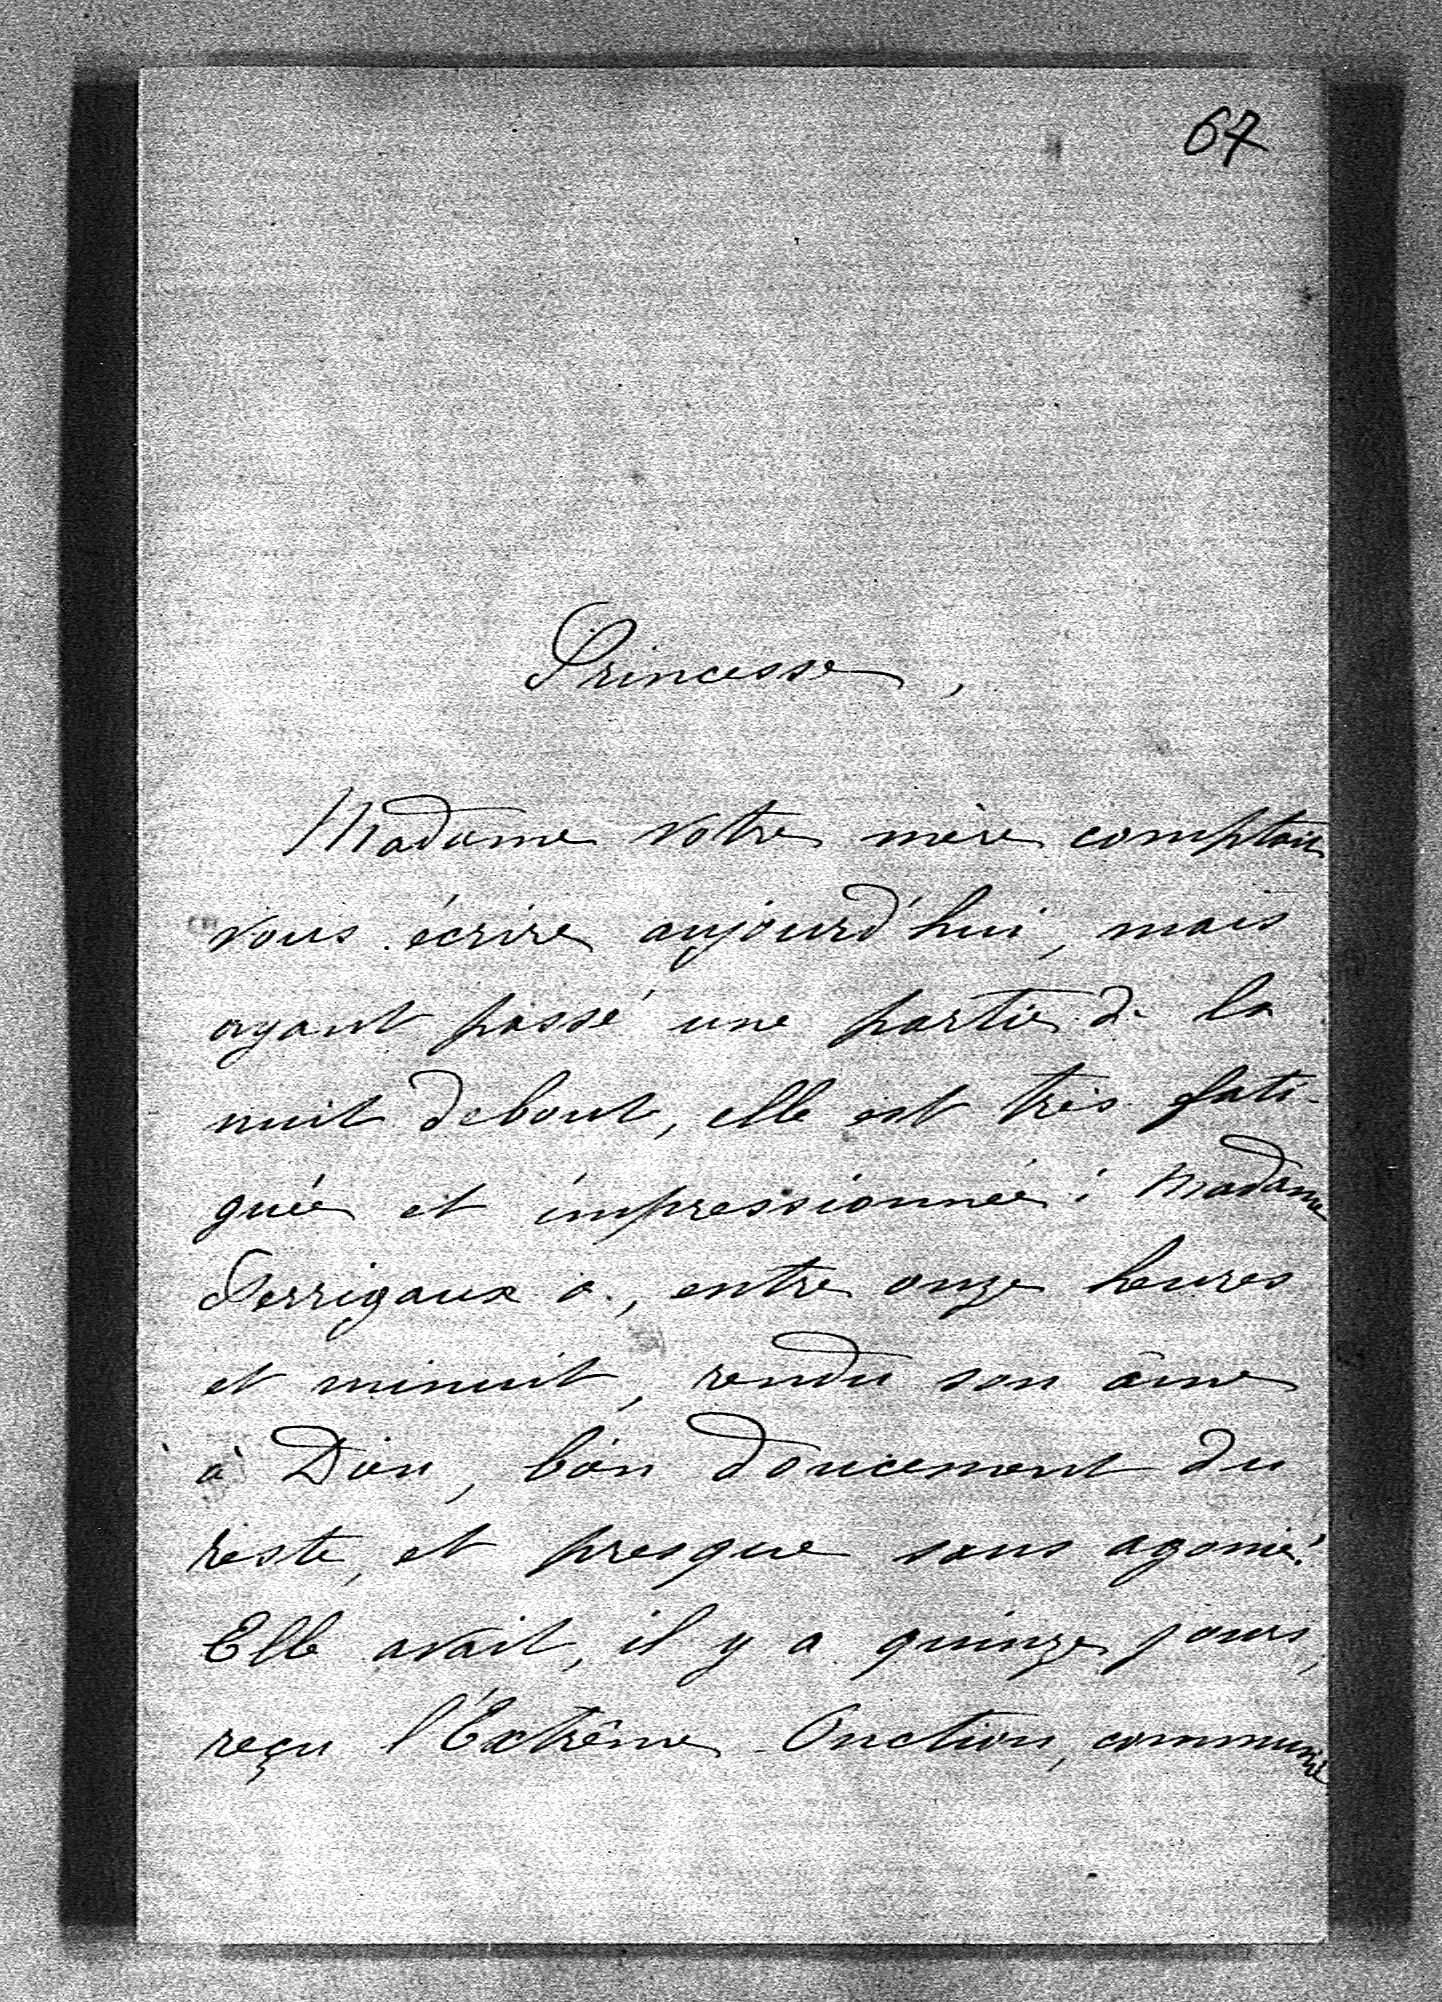 67
Princesse,
Madame votre mère comptait
vous écrire aujourd'hui, mais
ayant passé une partie de la
nuit debout, elle est très fati-
guée et impressionnée ; Madame
Perrigaux a, entre onze heures
et minuit, rendu son âme
à Dieu, bien doucement du
reste, et presque sans agonie.
Elle avait, il y a quinze jours,
reçu l'Extrême Onction, comme